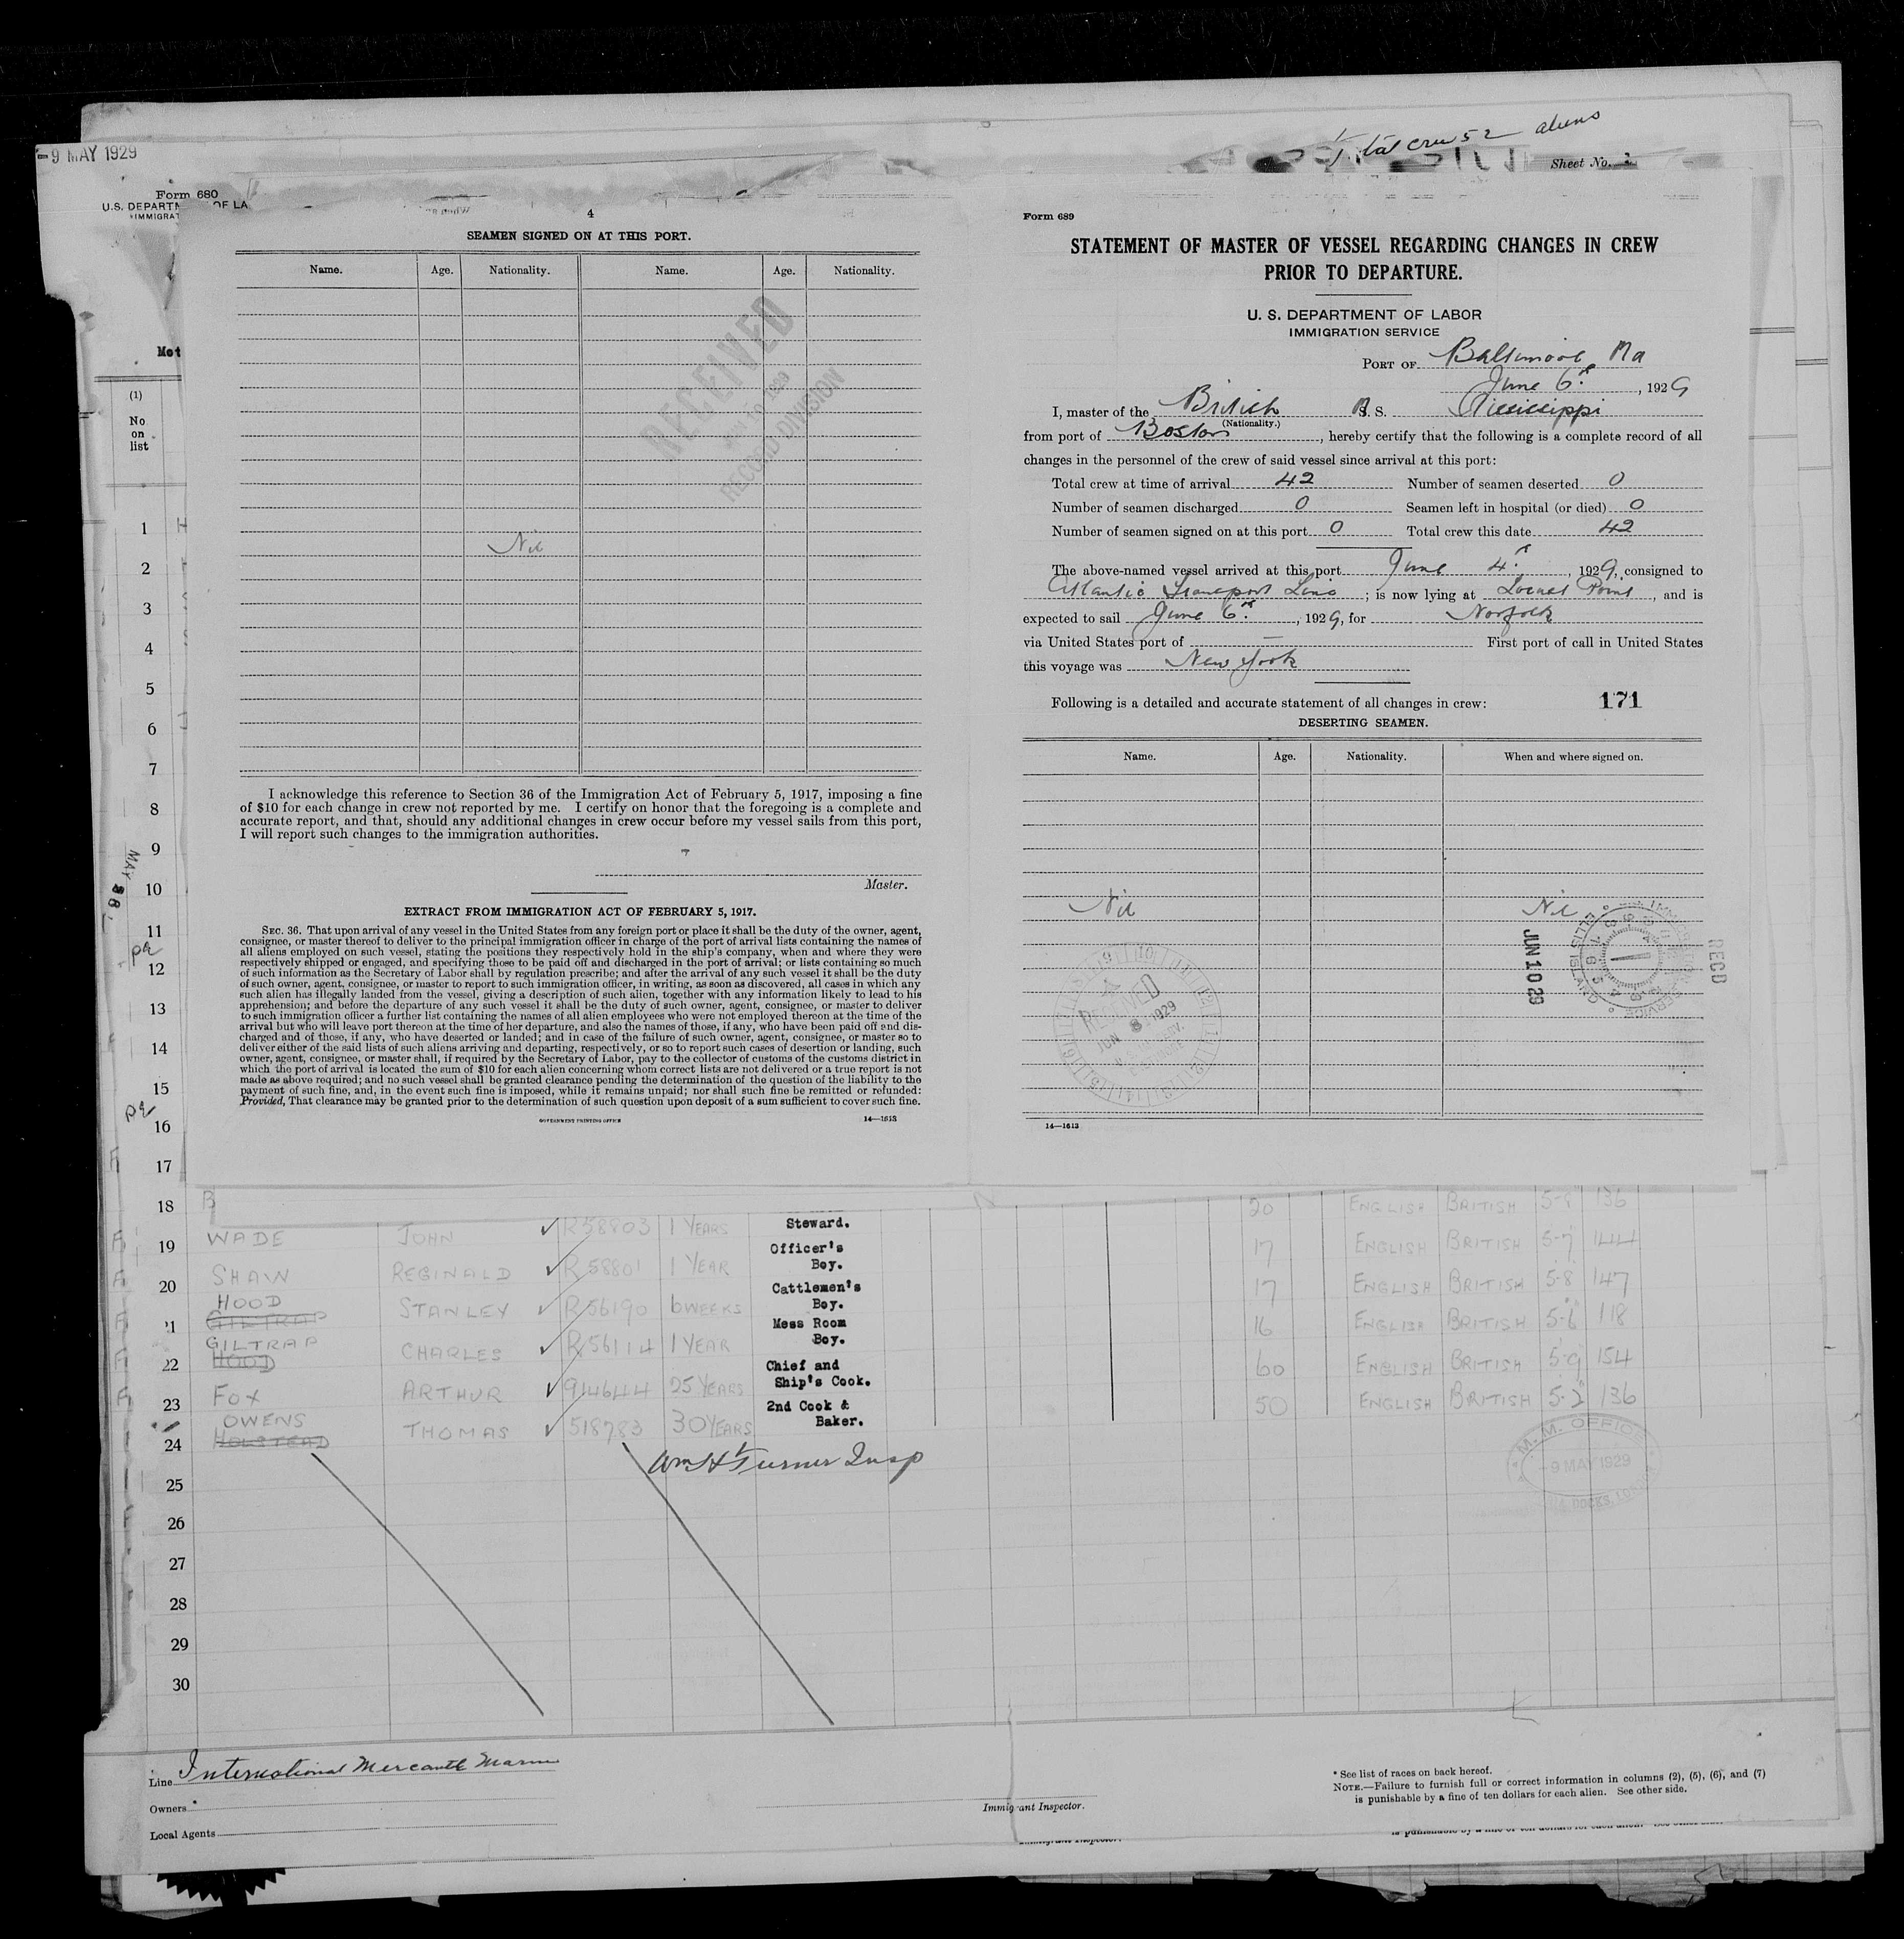 -9 MAY 1929
Total crew 52 aliens
Sheet No. 2
Form 680
U.S. DEPARTM OF LA
IMMIGRAT
Mot
(1)
No
on
list
4
SEAMEN SIGNED ON AT THIS PORT.
Name. Age. Nationality. Name. Age. Nationality.
RECEIVED
JUN 10 1929
RECORD DIVISION
Nil
I acknowledge this reference to Section 36 of the Immigration Act of February 5, 1917, imposing a fine
of $10 for each change in crew not reported by me. I certify on honor that the foregoing is a complete and
accurate report, and that, should any additional changes in crew occur before my vessel sails from this port,
I will report such changes to the immigration authorities.
Master.
EXTRACT FROM IMMIGRATION ACT OF FEBRUARY 5, 1917.
SEC. 36. That upon arrival of any vessel in the United States from any foreign port or place it shall be the duty of the owner, agent,
consignee, or master thereof to deliver to the principal immigration officer in charge of the port of arrival lists containing the names of
all aliens employed on such vessel, stating the positions they respectively hold in the ship's company, when and where they were
respectively shipped or engaged, and specifying those to be paid off and discharged in the port of arrival; or lists containing so much
of such information as the Secretary of Labor shall by regulation prescribe; and after the arrival of any such vessel it shall be the duty
of such owner, agent, consignee, or master to report to such immigration officer, in writing, as soon as discovered, all cases in which any
such alien has illegally landed from the vessel, giving a description of such alien, together with any information likely to lead to his
apprehension; and before the departure of any such vessel it shall be the duty of such owner, agent, consignee, or master to deliver
to such immigration officer a further list containing the names of all alien employees who were not employed thereon at the time of the
arrival but who will leave port thereon at the time of her departure, and also the names of those, if any, who have been paid off and dis-
charged and of those, if any, who have deserted or landed; and in case of the failure of such owner, agent, consignee, or master so to
deliver either of the said lists of such aliens arriving and departing, respectively, or so to report such cases of desertion or landing, such
owner, agent, consignee, or master shall, if required by the Secretary of Labor, pay to the collector of customs of the customs district in
which the port of arrival is located the sum of $10 for each alien concerning whom correct lists are not delivered or a true report is not
made as above required; and no such vessel shall be granted clearance pending the determination of the question of the liability to the
payment of such fine, and, in the event such fine is imposed, while it remains unpaid; nor shall such fine be remitted or refunded:
Provided, That clearance may be granted prior to the determination of such question upon deposit of a sum sufficient to cover such fine.
GOVERNMENT PRINTING OFFICE 14—1613
Form 689
STATEMENT OF MASTER OF VESSEL REGARDING CHANGES IN CREW
PRIOR TO DEPARTURE.
U. S. DEPARTMENT OF LABOR
IMMIGRATION SERVICE
PORT OF Baltimore, Md
June 6th, 1929
I, master of the British M. S. Mississippi
(Nationality.)
from port of Boston, hereby certify that the following is a complete record of all
changes in the personnel of the crew of said vessel since arrival at this port:
Total crew at time of arrival 42 Number of seamen deserted 0
Number of seamen discharged 0 Seamen left in hospital (or died) 0
Number of seamen signed on at this port 0 Total crew this date 42
The above-named vessel arrived at this port June 4th, 1929, consigned to
Atlantic Transport Line; is now lying at Locust Point, and is
expected to sail June 6th, 1929, for Norfolk
via United States port of — First port of call in United States
this voyage was New York
Following is a detailed and accurate statement of all changes in crew: 171
DESERTING SEAMEN.
Name. Age. Nationality. When and where signed on.
Nil Nil
RECEIVED
JUN 8 1929
JUN 10 29
ELLIS ISLAND
RECD
14—1613
1
2
3
4
5
6
7
8
9
10
11
12
13
14
15
16
17
18 20 ENGLISH BRITISH 5-8 136
19 WADE JOHN R58803 1 YEARS Steward. 17 ENGLISH BRITISH 5-7 144
20 SHAW REGINALD R58801 1 YEAR Officer's Boy. 17 ENGLISH BRITISH 5-8 147
21 HOOD GILTRAP STANLEY R56190 6 WEEKS Cattlemen's Boy. 16 ENGLISH BRITISH 5-6 118
22 GILTRAP HOOD CHARLES R56114 1 YEAR Mess Room Boy. 60 ENGLISH BRITISH 5-9 154
23 FOX ARTHUR 914644 25 YEARS Chief and Ship's Cook. 50 ENGLISH BRITISH 5-2 136
24 OWENS HOLSTEAD THOMAS 518783 30 YEARS 2nd Cook & Baker.
Wm H Turner Insp
M. M. OFFICE
-9 MAY 1929
25
26
27
28
29
30
Line International Mercantile Marine
Owners
Local Agents
Immigrant Inspector.
* See list of races on back hereof.
NOTE.—Failure to furnish full or correct information in columns (2), (5), (6), and (7)
is punishable by a fine of ten dollars for each alien. See other side.